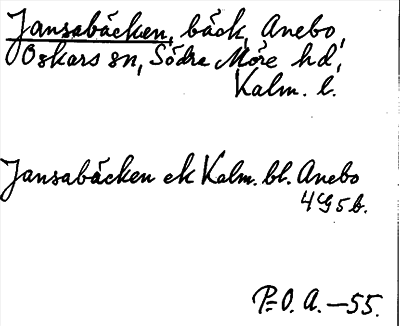 Jansabäcken, bäck, Anebo,
Oskars sn, Södra Möre hd,
Kalm. l.
Jansabäcken ek Kalm. bl. Anebo
4G5b.
P-O. A. -55.